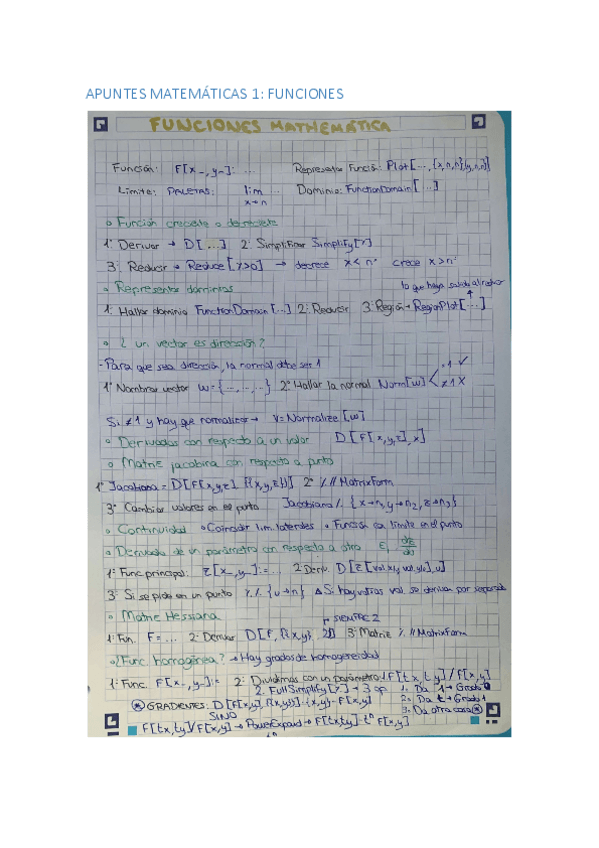 APUNTES MATEMÁTICAS 1: FUNCIONES
FUNCIONES MATHEMATICA
Función: F[x_,y_]: ... Representar Función: Plot[...,{x,n,n}{y,n,n}]
Límite: PALETAS: lim ... Dominio: FunctionDomain[...]
x→n
Función creciente o decreciente
1º Derivar → D[...] 2º Simplificar Simplify[%]
3º Reducir → Reduce[%>0] → decrece x<nº crece x>nº
Representar dominios
lo que haya salido al reducir
1º Hallar dominio FunctionDomain[...] 2º Reducir 3º Región → RegionPlot[...]
¿ un vector es dirección?
-Para que sea dirección, la normal debe ser 1
=1 ✓
1º Nombrar vector w={...,...,...} 2º Hallar la normal Norm[w]
≠1 X
Si ≠1 y hay que normalizar → v=Normalize[w]
Derivadas con respecto a un valor D[F[x,y,z],x]
Matriz jacobina con respecto a punto
1º Jacobiana = D[F[x,y,z],{{x,y,z}}] 2º %//MatrixForm
3º Cambiar valores en el punto Jacobiana/.{x→n,y→n2,z→n3}
Continuidad Coincidir lim. laterales Función con límite en el punto
Derivada de un parámetro con respecto a otro
1º Func. principal: z[x_,y_]:=... 2º Deriv. D[z[val.x,val.y],u]
3º Si se pide en un punto %/.{u→n} Δ Si hay varios val. se derivan por separado
Matriz Hessiana
SIEMPRE 2
1º Fun. F=... 2º Derivar D[f,{{x,y},2}] 3º Matriz %//MatrixForm
¿Func. homogénea? → Hay grados de homogeneidad
1º Func. F[x_,y_]:= 2º Dividimos con un parámetro F[tx,ty]/F[x,y]
2. FullSimplify[%] → 3 op 1. Da 1 → Grado 0
GRADIENTES: D[F[x,y],{{x,y}}]·{x,y}-F[x,y] 2. Da t → Grado 1
SINO 3. Da otra cosa
F[tx,ty]/F[x,y] → PowerExpand → F[tx,ty]-tⁿ F[x,y]